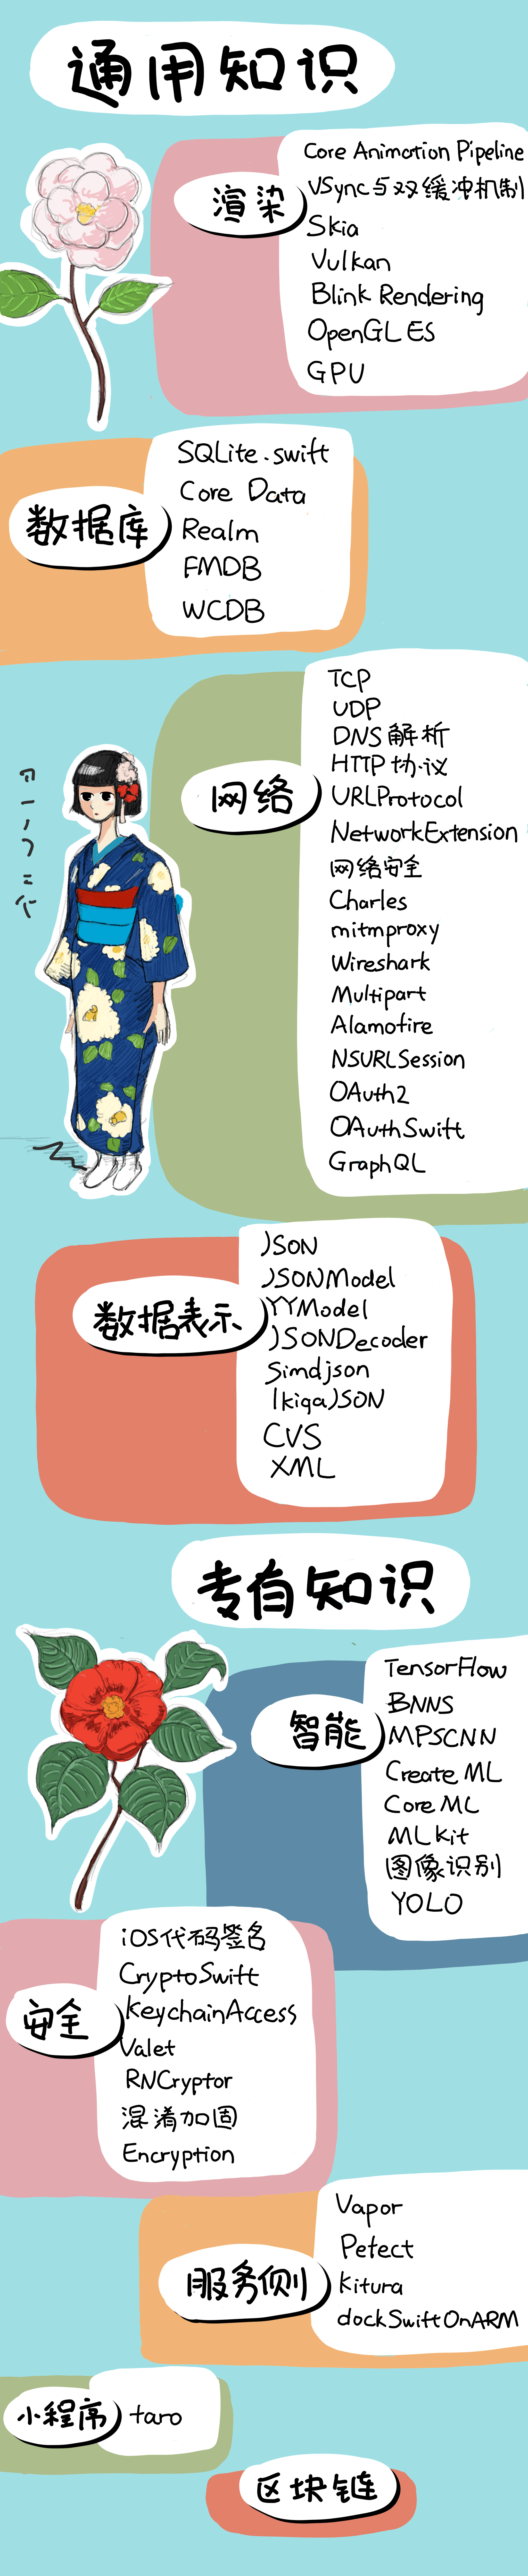 通用知识
渲染
Core Animation Pipeline
VSync与双缓冲机制
Skia
Vulkan
Blink Rendering
OpenGLES
GPU
数据库
SQLite.swift
Core Data
Realm
FMDB
WCDB
网络
TCP
UDP
DNS解析
HTTP协议
URLProtocol
NetworkExtension
网络安全
Charles
mitmproxy
Wireshark
Multipart
Alamofire
NSURLSession
OAuth2
OAuthSwift
GraphQL
数据表示
JSON
JSONModel
YYModel
JSONDecoder
Simdjson
IkigaJSON
CVS
XML
专有知识
智能
TensorFlow
BNNS
MPSCNN
Create ML
Core ML
MLKit
图像识别
YOLO
安全
iOS代码签名
CryptoSwift
KeychainAccess
Valet
RNCryptor
混淆加固
Encryption
服务侧
Vapor
Pefect
Kitura
dockSwiftOnARM
小程序
taro
区块链